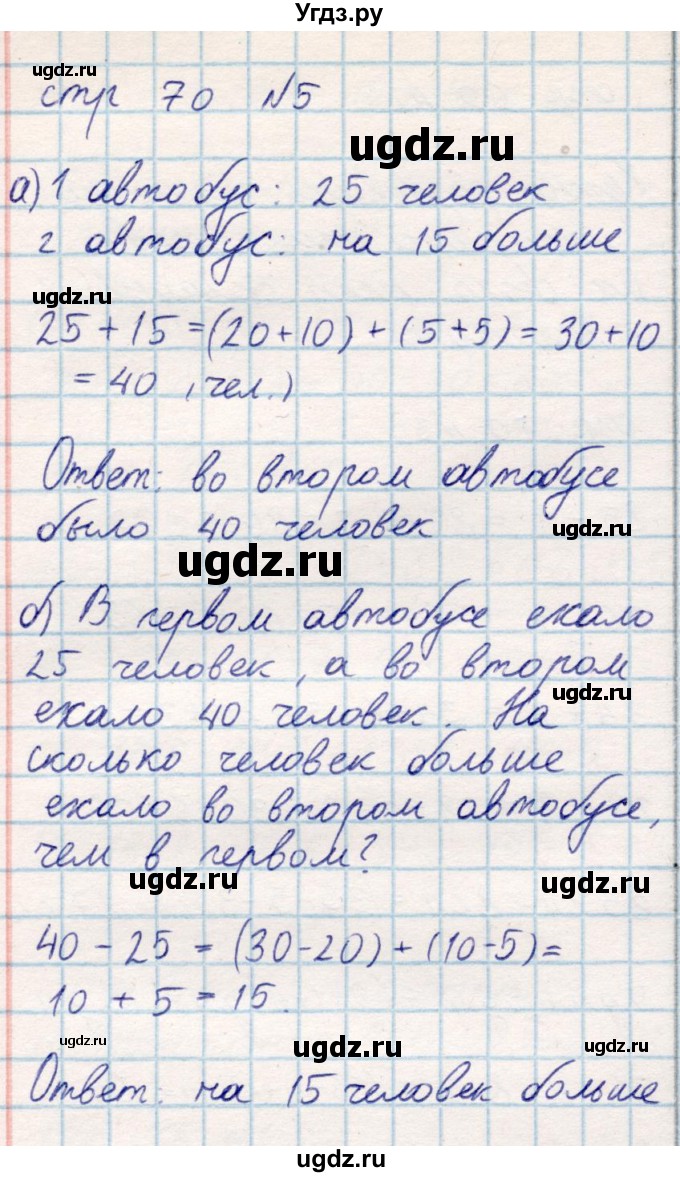 Угдз.ру
ugdz.ru
стр 70 №5
ugdz.ru
а) 1 автобус: 25 человек
2 автобус: на 15 больше
ugdz.ru
25 + 15 = (20+10) + (5+5) = 30+10
= 40 (чел.)
Ответ: во втором автобусе
было 40 человек
ugdz.ru
ugdz.ru
б) В первом автобусе ехало
25 человек, а во втором
ugdz.ru
ехало 40 человек. На
сколько человек больше
ехало во втором автобусе,
чем в первом?
ugdz.ru
ugdz.ru
40 - 25 = (30-20) + (10-5) =
10 + 5 = 15.
ugdz.ru
ugdz.ru
ugdz.ru
Ответ: на 15 человек больше
ugdz.ru